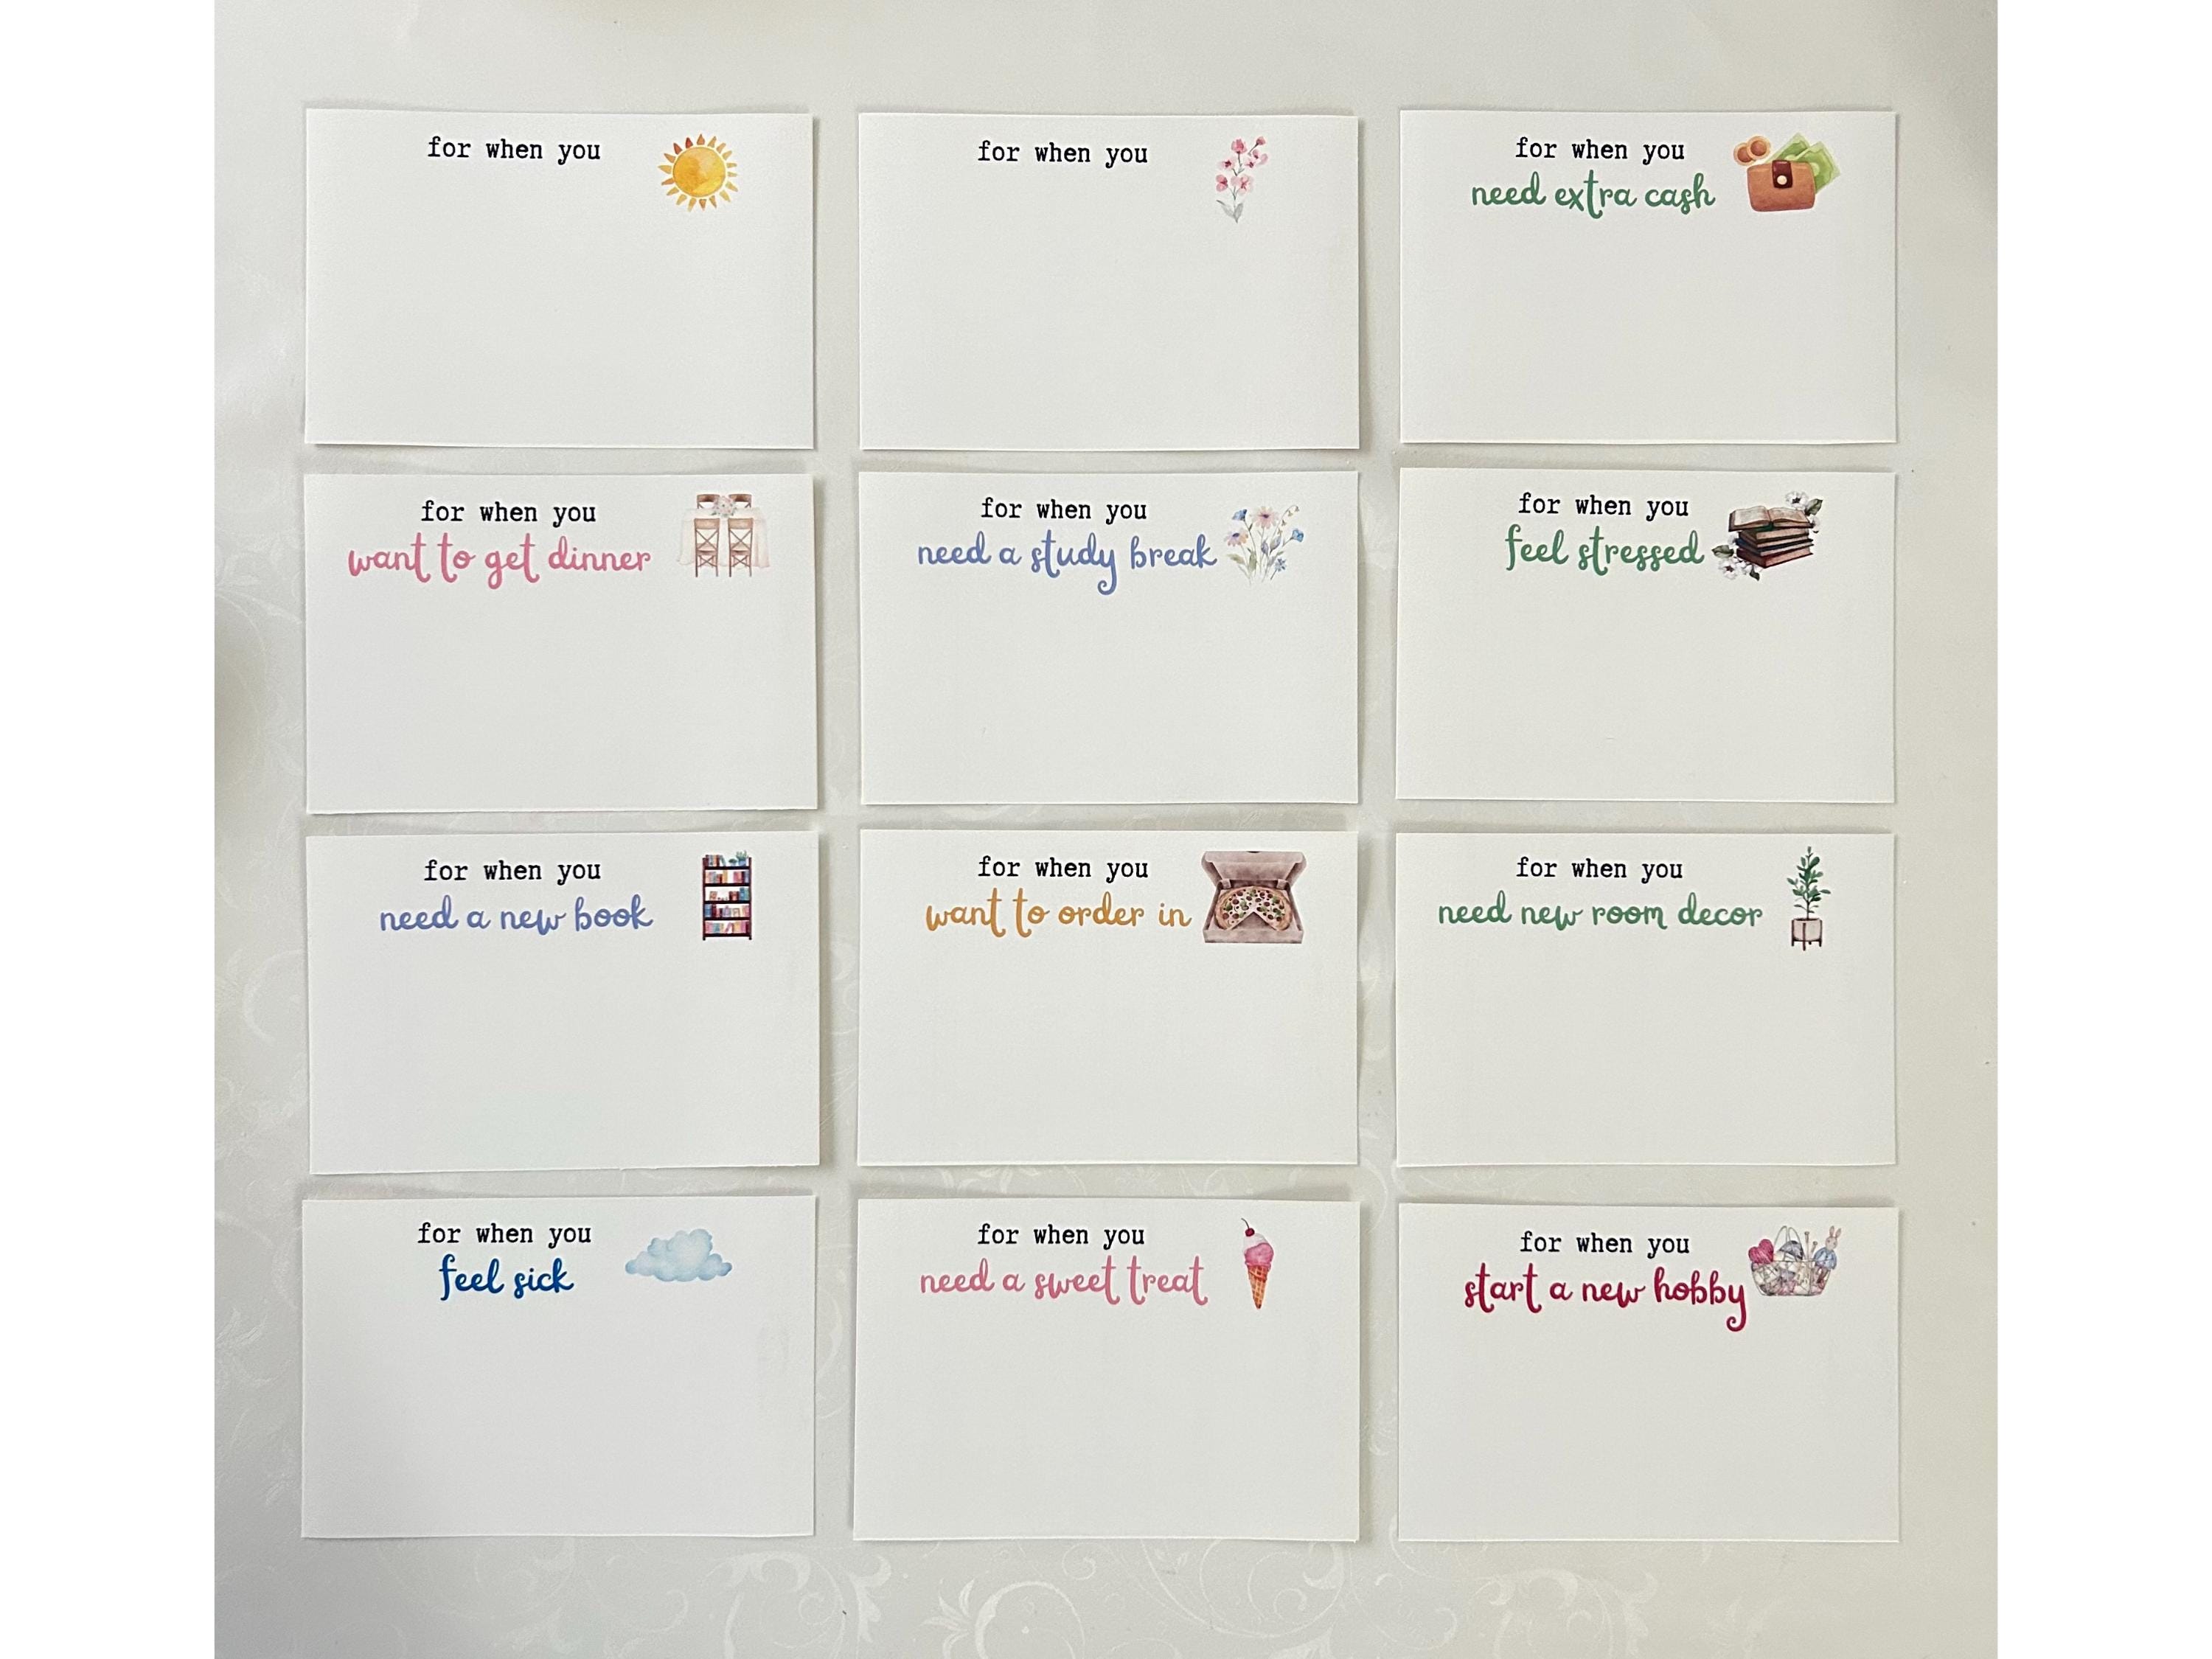 for when you
for when you
for when you
need extra cash
for when you
want to get dinner
for when you
need a study break
for when you
feel stressed
for when you
need a new book
for when you
want to order in
for when you
need new room decor
for when you
feel sick
for when you
need a sweet treat
for when you
start a new hobby